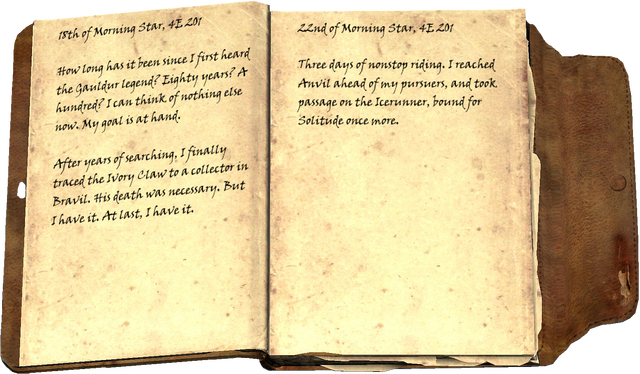 18th of Morning Star, 4E 201
How long has it been since I first heard
the Gauldur legend? Eighty years? A
hundred? I can think of nothing else
now. My goal is at hand.
After years of searching, I finally
traced the Ivory Claw to a collector in
Bravil. His death was necessary. But
I have it. At last, I have it.
22nd of Morning Star, 4E 201
Three days of nonstop riding. I reached
Anvil ahead of my pursuers, and took
passage on the Icerunner, bound for
Solitude once more.